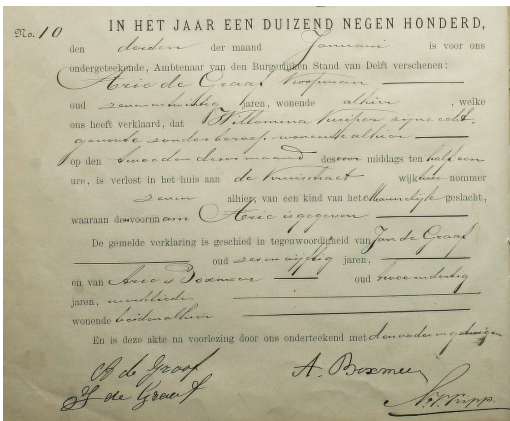 No. 10
IN HET JAAR EEN DUIZEND NEGEN HONDERD,
den derden der maand Januari is voor ons
ondergeteekende, Ambtenaar van den Burgerlijken Stand van Delft verschenen:
Arie de Graaf Koopman
oud zevenentwintig jaren, wonende alhier, welke
ons heeft verklaard, dat Willemina Kuiper zijne echt,
genoote zonder beroep wonende alhier
op den tweeden dezer maand des voor middags ten half een
ure, is verlost in het huis aan de wijk nummer
zeven alhier, van een kind van het Mannelijk geslacht,
waaraan de voornaam Arie is gegeven
De gemelde verklaring is geschied in tegenwoordigheid van Jan de Graaf
oud zevenvijftig jaren,
en van Arie Boxmeer oud
jaren,
wonende beiden alhier
En is deze akte na voorlezing door ons onderteekend met den vader en getuigen
A de Graaf
A. Boxmeer
J de Graaf